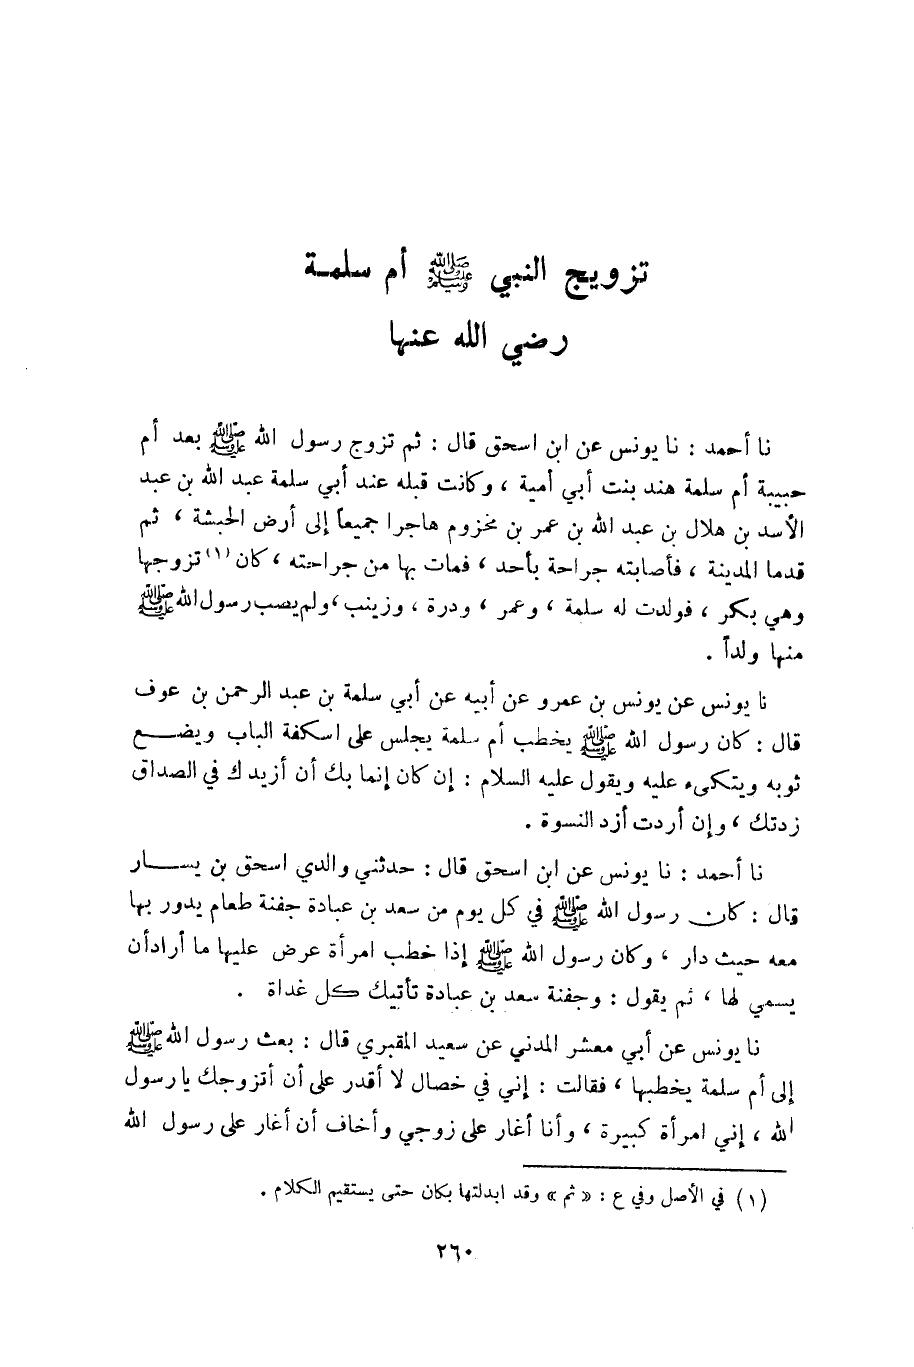 تزويج النبي ﷺ أم سلمة
رضي الله عنها
نا أحمد : نا يونس عن ابن اسحق قال : ثم تزوج رسول الله ﷺ بعد أم
حبيبة أم سلمة هند بنت أبي أمية ، وكانت قبله عند أبي سلمة عبد الله بن عبد
الأسد بن هلال بن عبد الله بن عمر بن مخزوم هاجرا جميعاً إلى أرض الحبشة ، ثم
قدما المدينة ، فأصابته جراحة بأحد ، فمات بها من جراحته ، كان (١) تزوجها
وهي بكر ، فولدت له سلمة ، وعمر ، ودرة ، وزينب ، ولم يصب رسول الله ﷺ
منها ولداً .
نا يونس عن يونس بن عمرو عن أبيه عن أبي سلمة بن عبد الرحمن بن عوف
قال : كان رسول الله ﷺ يخطب أم سلمة يجلس على اسكفة الباب ويضع
ثوبه ويتكىء عليه ويقول عليه السلام : إن كان إنما بك أن أزيدك في الصداق
زدتك ، وإن أردت أزد النسوة .
نا أحمد : نا يونس عن ابن اسحق قال : حدثني والدي اسحق بن يسار
قال : كان رسول الله ﷺ في كل يوم من سعد بن عبادة جفنة طعام يدور بها
معه حيث دار ، وكان رسول الله ﷺ إذا خطب امرأة عرض عليها ما أراد أن
يسمي لها ، ثم يقول : وجفنة سعد بن عبادة تأتيك كل غداة .
نا يونس عن أبي معشر المدني عن سعيد المقبري قال : بعث رسول الله ﷺ
إلى أم سلمة يخطبها ، فقالت : إني في خصال لا أقدر على أن أتزوجك يا رسول
الله ، إني امرأة كبيرة ، وأنا أغار على زوجي وأخاف أن أغار على رسول الله
(١) في الأصل وفي ع : « ثم » وقد ابدلتها بكان حتى يستقيم الكلام .
٢٦٠